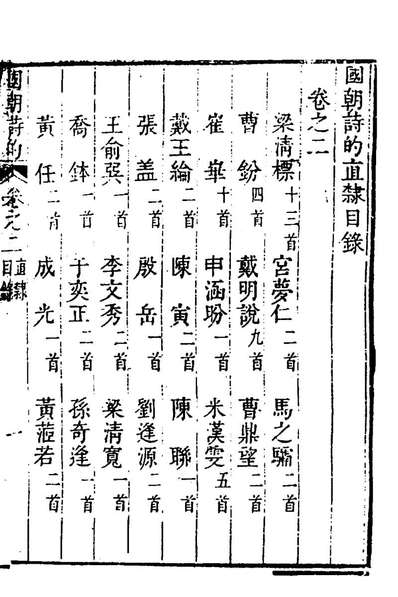 國朝詩的直隸目錄
卷之二
梁清標十三首 宮夢仁二首 馬之驦二首
曹鈖四首 戴明說九首 曹鼎望二首
崔華十首 申涵盼一首 米漢雯五首
戴王綸二首 陳寅二首 陳聯一首
張蓋二首 殷岳一首 劉逢源二首
王俞巽一首 李文秀二首 梁清寬一首
喬鉢一首 于奕正二首 孫奇逢一首
黃任二首 成光一首 黃蒞若二首
國朝詩的 卷之二 直隸目錄 一